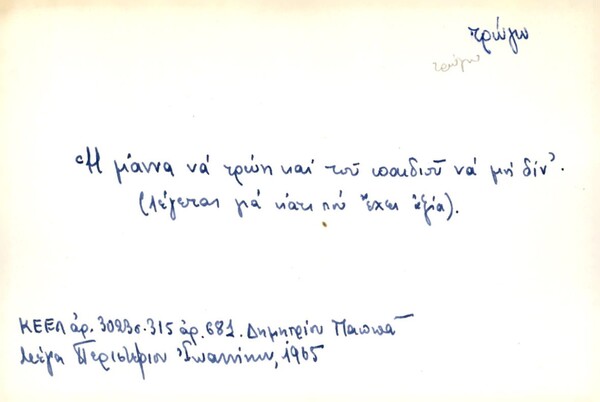 τρώγω
τρώγω
Ἡ μάννα νά τρώῃ καί τοῦ παιδιοῦ νά μή δίν'.
(Λέγεται γιά κάτι πού ἔχει ἀξία).
ΚΕΕΛ ἀρ. 3023 σ. 315 ἀρ. 681. Δημητρίου Παππᾶ
Μέγα Περιστέριον Ἰωαννίνων, 1965